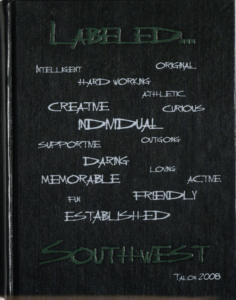 LABELED...
INTELLIGENT
ORIGINAL
HARD WORKING
ATHLETIC
CREATIVE
CURIOUS
INDIVIDUAL
SUPPORTIVE
OUTGOING
DARING
LOVING
MEMORABLE
ACTIVE
FUN
FRIENDLY
ESTABLISHED
SOUTHWEST
TALON 2008